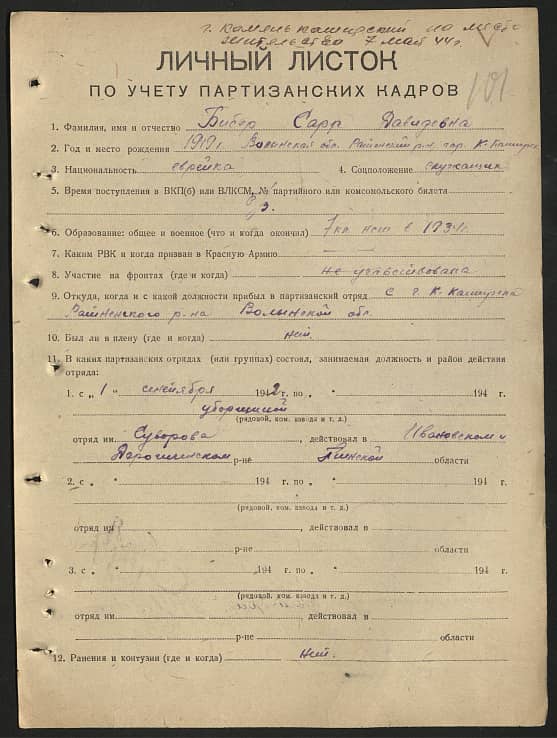 г. Камень Каширский по место
жительство 7 май 44 г.
ЛИЧНЫЙ ЛИСТОК
ПО УЧЕТУ ПАРТИЗАНСКИХ КАДРОВ
101
1. Фамилия, имя и отчество Бибер Сарр Давидевна
2. Год и место рождения 1919 г. Волинская обл. р-н гор. К-Каширск
3. Национальность еврейка 4. Соцположение служащий
5. Время поступления в ВКП(б) или ВЛКСМ, № партийного или комсомольского билета
б/п.
6. Образование: общее и военное (что и когда окончил) 7 кл в 1934 г.
7. Каким РВК и когда призван в Красную Армию
8. Участие на фронтах (где и когда) не участвовала
9. Откуда, когда и с какой должности прибыл в партизанский отряд с г. К. Каширска
р-на Волынской обл.
10. Был ли в плену (где и когда) нет.
11. В каких партизанских отрядах (или группах) состоял, занимаемая должность и район действия
отряда:
1. с „1 " сентября 1942 г. по „ " 194 г.
уборщицой
(рядовой, ком. взвода и т. д.)
отряд им. Суворова, действовал в Ивановском и
Дарогичинском р-не Пинской области
2. с „ " 194 г. по „ " 194 г.
(рядовой, ком. взвода и т. д.)
отряд им. , действовал в
р-не области
3. с „ " 194 г. по „ " 194 г.
(рядовой, ком. взвода и т. д.)
отряд им. , действовал в
р-не области
12. Ранения и контузии (где и когда) нет.